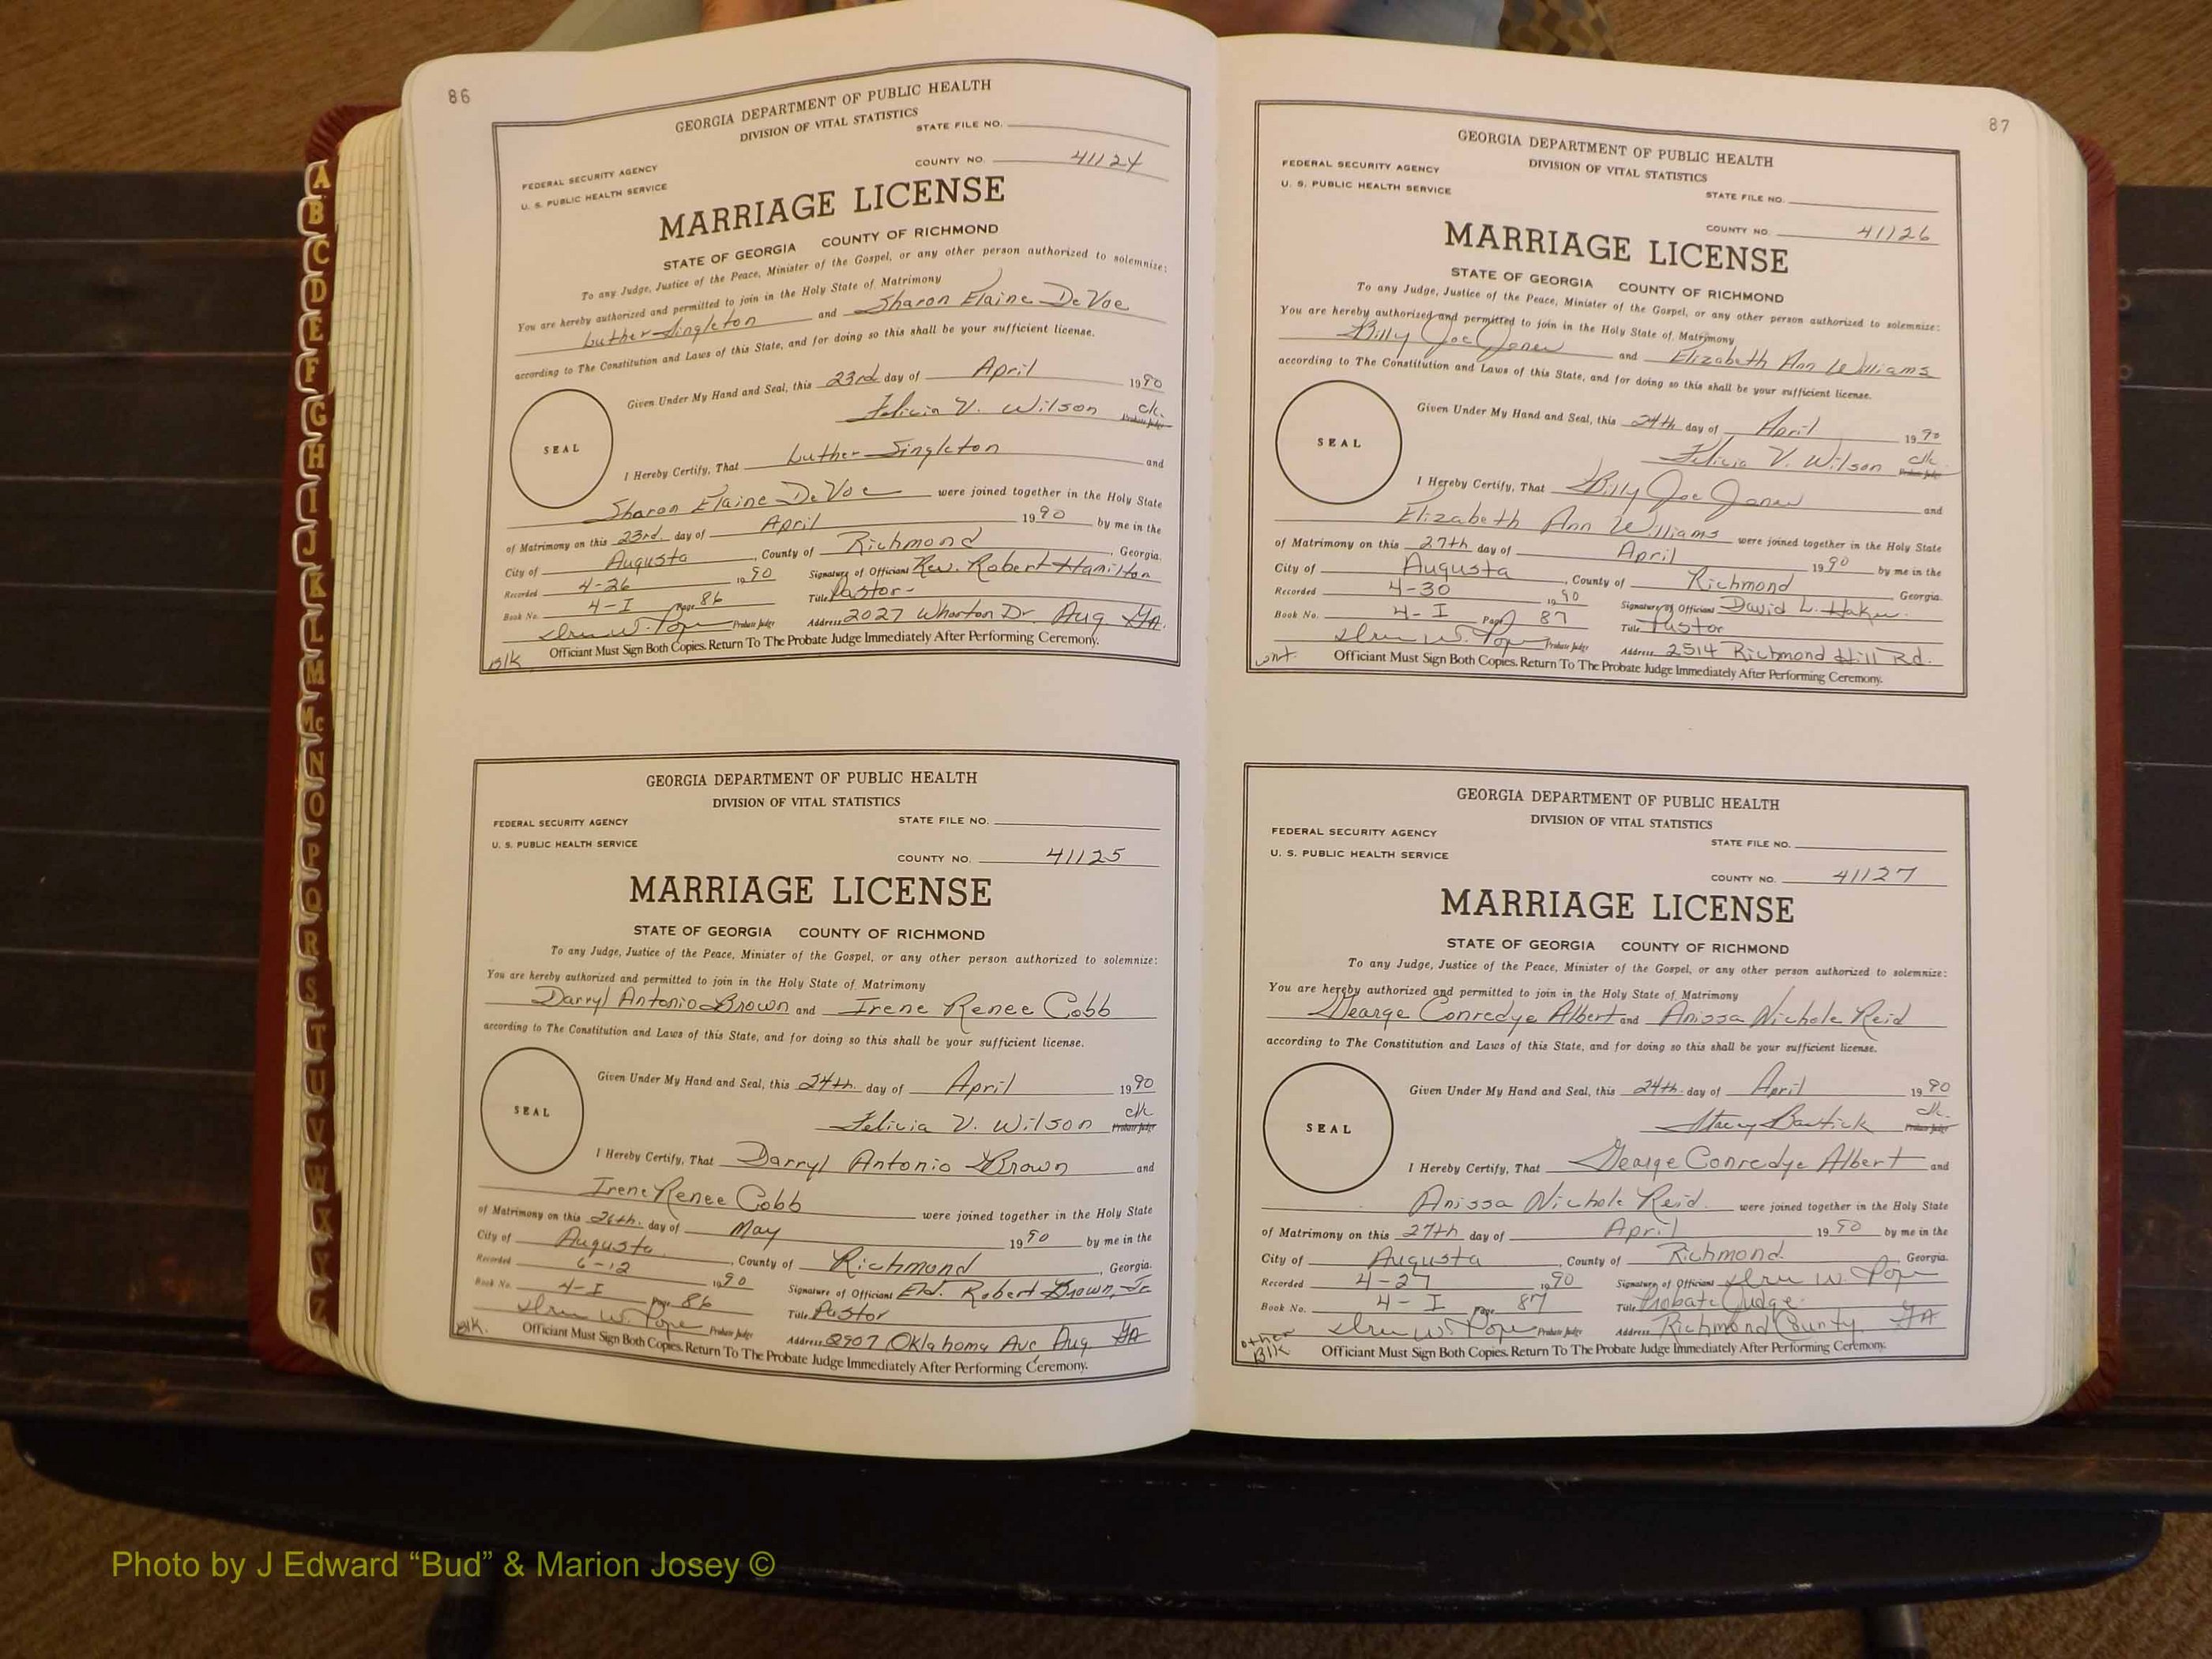 86
GEORGIA DEPARTMENT OF PUBLIC HEALTH
DIVISION OF VITAL STATISTICS
STATE FILE NO.
FEDERAL SECURITY AGENCY
U. S. PUBLIC HEALTH SERVICE
COUNTY NO. 41124
MARRIAGE LICENSE
STATE OF GEORGIA COUNTY OF RICHMOND
To any Judge, Justice of the Peace, Minister of the Gospel, or any other person authorized to solemnize:
You are hereby authorized and permitted to join in the Holy State of Matrimony
Luther Singleton and Sharon Elaine DeVoe
according to The Constitution and Laws of this State, and for doing so this shall be your sufficient license.
Given Under My Hand and Seal, this 23rd day of April 1990
Felicia V. Wilson clk. Probate Judge
SEAL
I Hereby Certify, That Luther Singleton and
Sharon Elaine DeVoe were joined together in the Holy State
of Matrimony on this 23rd. day of April 1990 by me in the
City of Augusta, County of Richmond, Georgia.
Recorded 4-26 1990 Signature of Officiant Rev. Robert Hamilton
Book No. 4-I Page 86 Title Pastor-
W. Pope Probate Judge Address 2027 Wharton Dr. Aug. GA.
Blk Officiant Must Sign Both Copies. Return To The Probate Judge Immediately After Performing Ceremony.
GEORGIA DEPARTMENT OF PUBLIC HEALTH
DIVISION OF VITAL STATISTICS
FEDERAL SECURITY AGENCY
STATE FILE NO.
U. S. PUBLIC HEALTH SERVICE
COUNTY NO. 41125
MARRIAGE LICENSE
STATE OF GEORGIA COUNTY OF RICHMOND
To any Judge, Justice of the Peace, Minister of the Gospel, or any other person authorized to solemnize:
You are hereby authorized and permitted to join in the Holy State of Matrimony
Darryl Antonio Brown and Irene Renee Cobb
according to The Constitution and Laws of this State, and for doing so this shall be your sufficient license.
Given Under My Hand and Seal, this 24th. day of April 1990
Felicia V. Wilson clk Probate Judge
SEAL
I Hereby Certify, That Darryl Antonio Brown and
Irene Renee Cobb were joined together in the Holy State
of Matrimony on this 26th. day of May 1990 by me in the
City of Augusta, County of Richmond, Georgia.
Recorded 6-12 1990 Signature of Officiant Eld. Robert Brown, Jr
Book No. 4-I Page 86 Title Pastor
W. Pope Probate Judge Address 2907 Oklahoma Ave Aug. GA
Blk. Officiant Must Sign Both Copies. Return To The Probate Judge Immediately After Performing Ceremony.
87
GEORGIA DEPARTMENT OF PUBLIC HEALTH
DIVISION OF VITAL STATISTICS
FEDERAL SECURITY AGENCY
U. S. PUBLIC HEALTH SERVICE
STATE FILE NO.
COUNTY NO. 41126
MARRIAGE LICENSE
STATE OF GEORGIA COUNTY OF RICHMOND
To any Judge, Justice of the Peace, Minister of the Gospel, or any other person authorized to solemnize:
You are hereby authorized and permitted to join in the Holy State of Matrimony
Billy Joe Jones and Elizabeth Ann Williams
according to The Constitution and Laws of this State, and for doing so this shall be your sufficient license.
Given Under My Hand and Seal, this 24th day of April 1990
Felicia V. Wilson clk. Probate Judge
SEAL
I Hereby Certify, That Billy Joe Jones and
Elizabeth Ann Williams were joined together in the Holy State
of Matrimony on this 27th day of April 1990 by me in the
City of Augusta, County of Richmond, Georgia.
Recorded 4-30 1990 Signature of Officiant David L.
Book No. 4-I Page 87 Title Pastor
W. Pope Probate Judge Address 2514 Richmond Hill Rd.
wht. Officiant Must Sign Both Copies. Return To The Probate Judge Immediately After Performing Ceremony.
GEORGIA DEPARTMENT OF PUBLIC HEALTH
DIVISION OF VITAL STATISTICS
FEDERAL SECURITY AGENCY
STATE FILE NO.
U. S. PUBLIC HEALTH SERVICE
COUNTY NO. 41127
MARRIAGE LICENSE
STATE OF GEORGIA COUNTY OF RICHMOND
To any Judge, Justice of the Peace, Minister of the Gospel, or any other person authorized to solemnize:
You are hereby authorized and permitted to join in the Holy State of Matrimony
George Conredye Albert and Anissa Nichole Reid
according to The Constitution and Laws of this State, and for doing so this shall be your sufficient license.
Given Under My Hand and Seal, this 24th. day of April 1990
Stacy Bastick clk. Probate Judge
SEAL
I Hereby Certify, That George Conredye Albert and
Anissa Nichole Reid. were joined together in the Holy State
of Matrimony on this 27th day of April 1990 by me in the
City of Augusta, County of Richmond. Georgia.
Recorded 4-27 1990 Signature of Officiant W. Pope
Book No. 4-I Page 87 Title Probate Judge.
W. Pope Probate Judge Address Richmond County GA
other Blk Officiant Must Sign Both Copies. Return To The Probate Judge Immediately After Performing Ceremony.
A
B
C
D
E
F
G
H
I
J
K
L
M
Mc
N
O
P
Q
R
S
T
U
V
W
X
Y
Z
Photo by J Edward “Bud” & Marion Josey ©